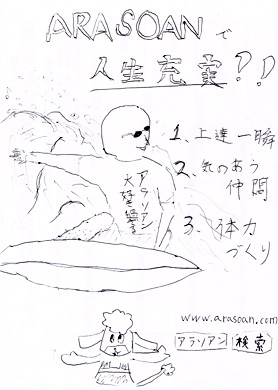 ARASOANで
人生充実??
1、上達一瞬
2、気のあう
仲間
3、体力
づくり
アラソアン
大好き
www.arasoan.com
アラソアン 検索